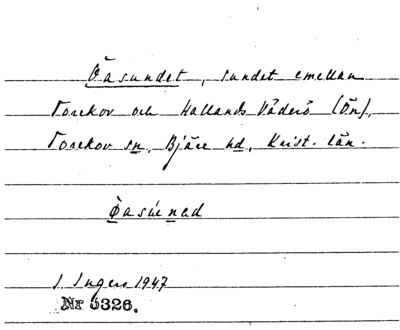 Öasundet, sundet emellan
Torekov och Hallands Väderö (Ön),
Torekov sn, Bjäre hd, Krist. län.
I. Ingers 1947
Nr 5326.